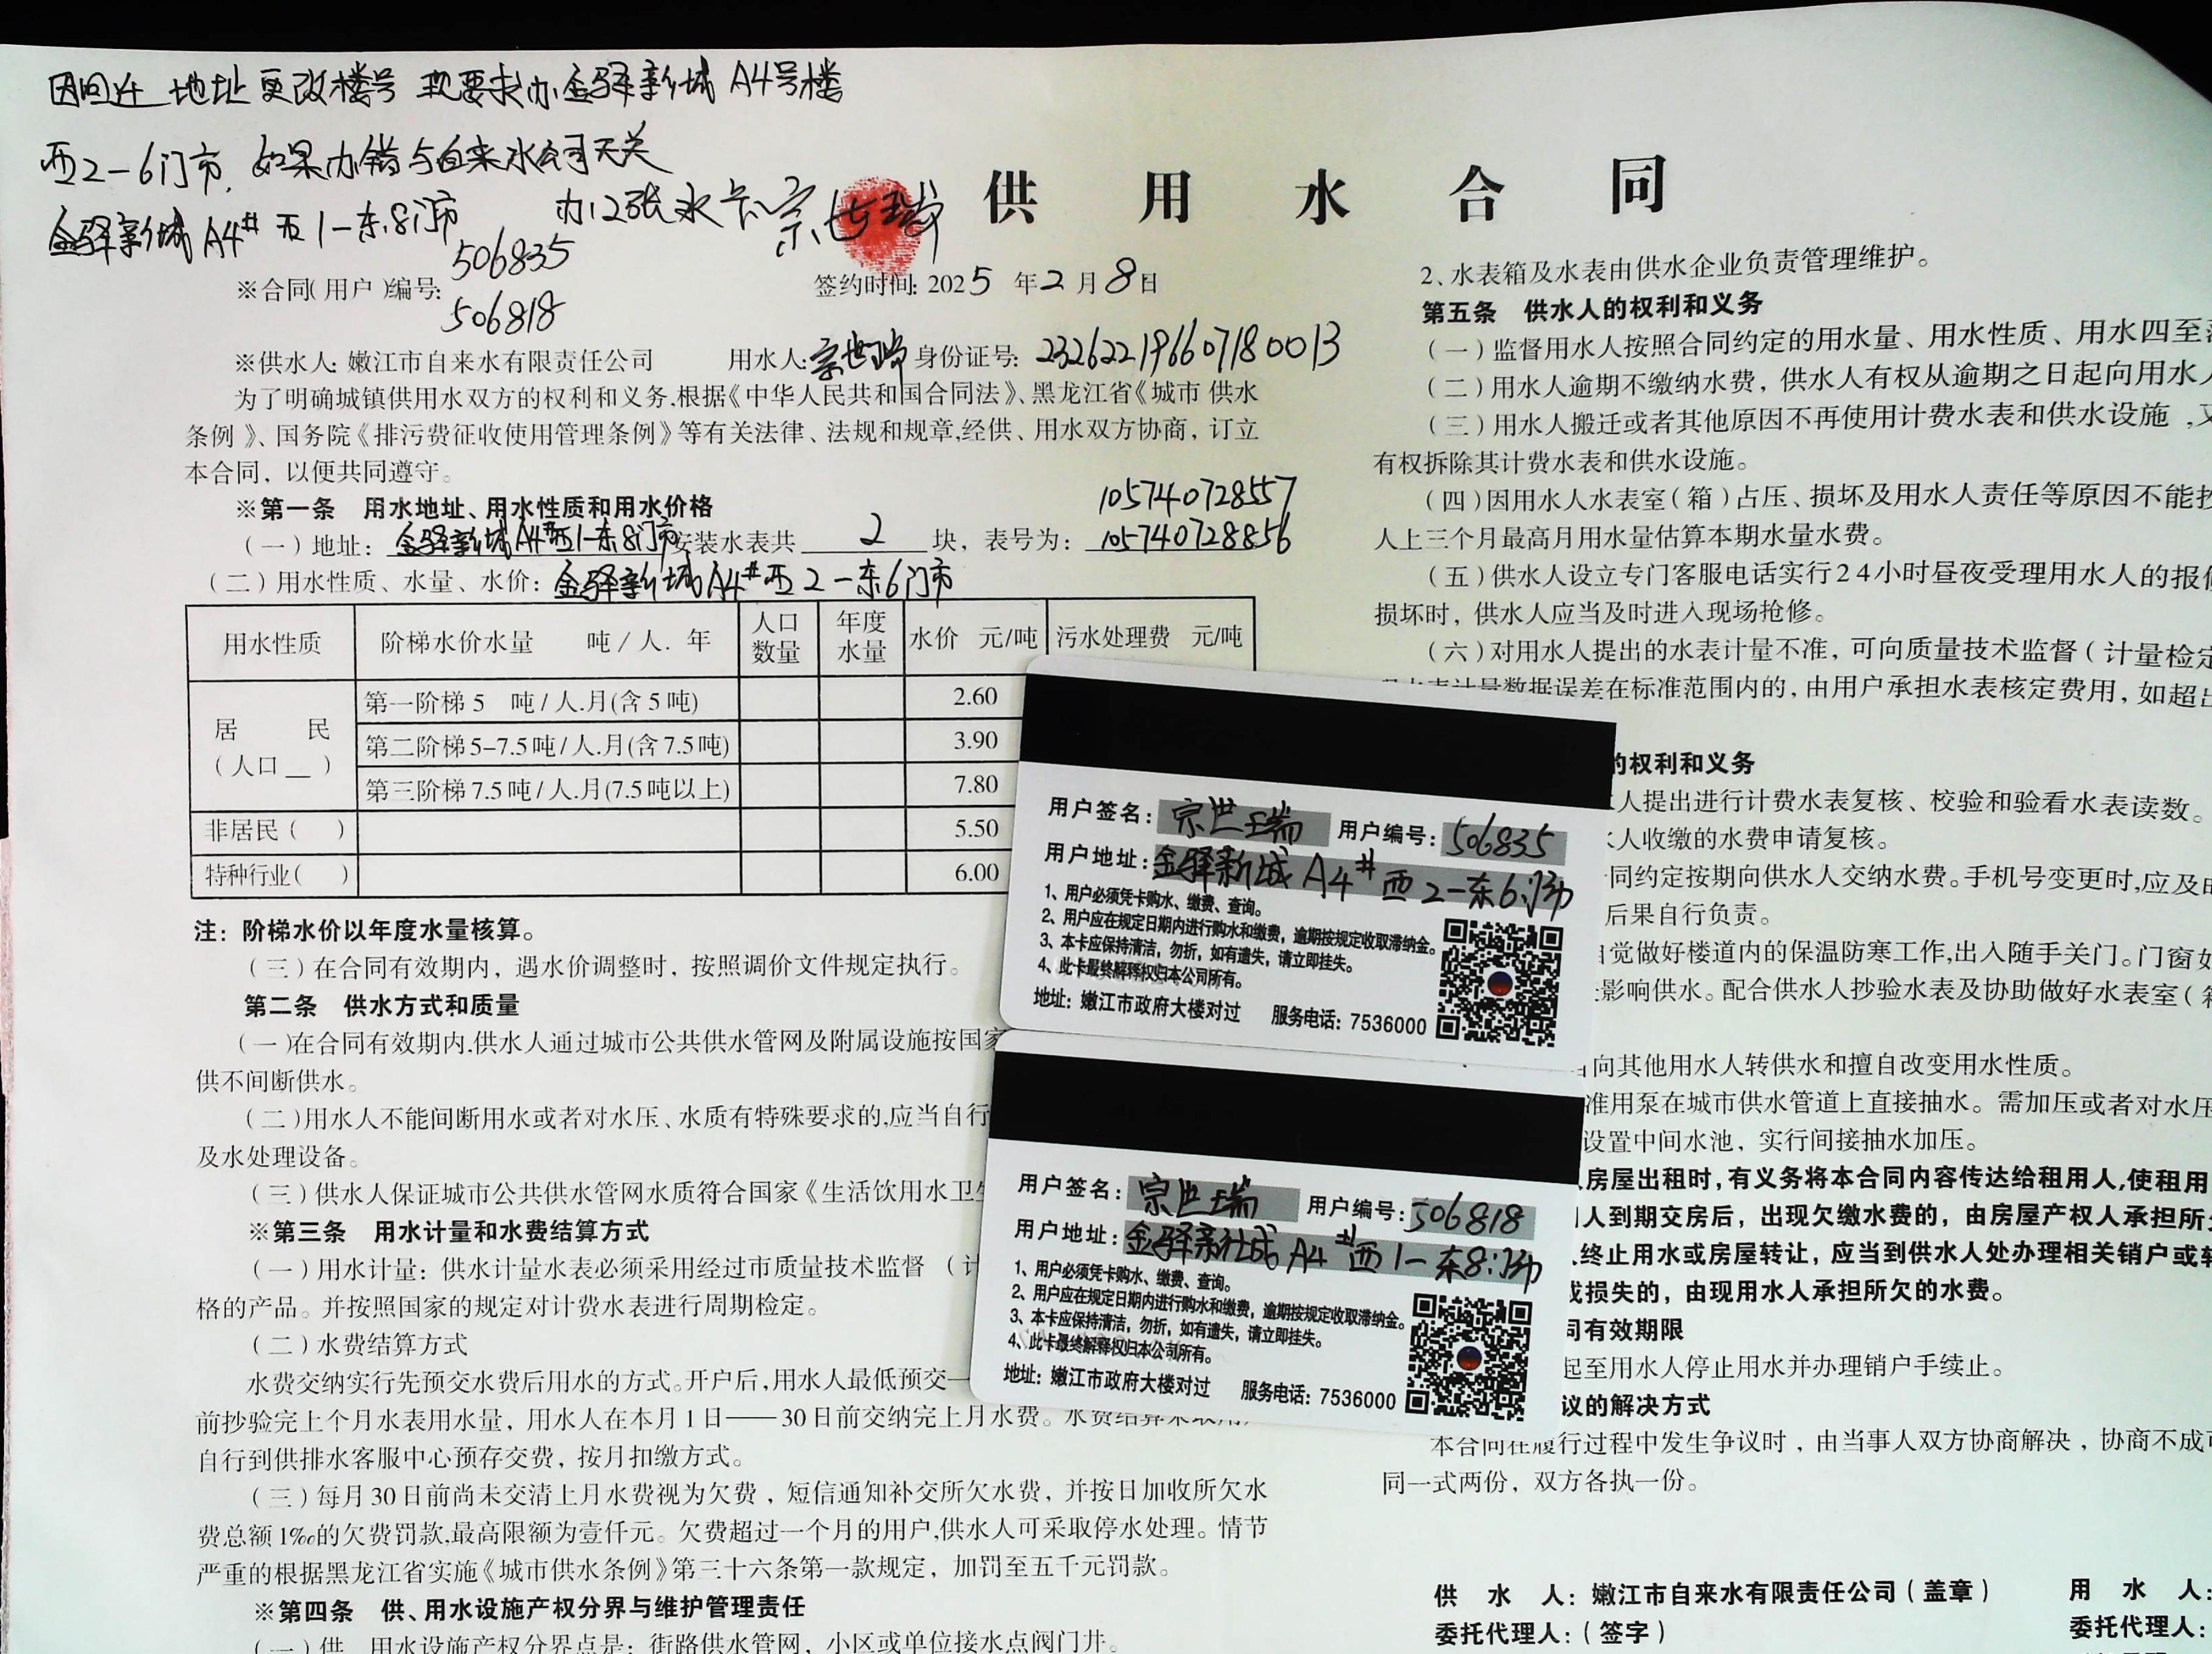 因回迁 地址更改楼号 现要求办金驿新城 A4号楼
西2-6门市, 如果办错与自来水公司无关
办12张水卡 宗世瑞
金驿新城 A4# 西1-东8门市
供 用 水 合 同
※合同(用户)编号: 506835
506818
签约时间: 2025 年2月8日
※供水人: 嫩江市自来水有限责任公司 用水人: 宗世瑞 身份证号: 232622196607180013
为了明确城镇供用水双方的权利和义务,根据《中华人民共和国合同法》、黑龙江省《城市 供水
条例》、国务院《排污费征收使用管理条例》等有关法律、法规和规章,经供、用水双方协商，订立
本合同，以便共同遵守。
※第一条 用水地址、用水性质和用水价格
105740728557
(一)地址: 金驿新城A4#西1-东8门市 安装水表共 2 块，表号为: 105740728856
(二)用水性质、水量、水价: 金驿新城A4#西2-东6门市
用水性质 阶梯水价水量 吨/人.年 人口数量 年度水量 水价 元/吨 污水处理费 元/吨
居 民 (人口__)
第一阶梯 5 吨/人.月(含5吨) 2.60
第二阶梯 5-7.5吨/人.月(含7.5吨) 3.90
第三阶梯 7.5吨/人.月(7.5吨以上) 7.80
非居民( ) 5.50
特种行业( ) 6.00
注：阶梯水价以年度水量核算。
(三)在合同有效期内，遇水价调整时，按照调价文件规定执行。
第二条 供水方式和质量
(一)在合同有效期内,供水人通过城市公共供水管网及附属设施按国家
供不间断供水。
(二)用水人不能间断用水或者对水压、水质有特殊要求的,应当自行
及水处理设备。
(三)供水人保证城市公共供水管网水质符合国家《生活饮用水卫生
※第三条 用水计量和水费结算方式
(一)用水计量：供水计量水表必须采用经过市质量技术监督（计
格的产品。并按照国家的规定对计费水表进行周期检定。
(二)水费结算方式
水费交纳实行先预交水费后用水的方式。开户后,用水人最低预交一
前抄验完上个月水表用水量，用水人在本月1日——30日前交纳完上月水费。水费结算采取用户
自行到供排水客服中心预存交费，按月扣缴方式。
(三)每月30日前尚未交清上月水费视为欠费，短信通知补交所欠水费，并按日加收所欠水
费总额1‰的欠费罚款,最高限额为壹仟元。欠费超过一个月的用户,供水人可采取停水处理。情节
严重的根据黑龙江省实施《城市供水条例》第三十六条第一款规定，加罚至五千元罚款。
※第四条 供、用水设施产权分界与维护管理责任
(一)供、用水设施产权分界点是：街路供水管网，小区或单位接水点阀门井。
2、水表箱及水表由供水企业负责管理维护。
第五条 供水人的权利和义务
(一)监督用水人按照合同约定的用水量、用水性质、用水四至
(二)用水人逾期不缴纳水费，供水人有权从逾期之日起向用水人
(三)用水人搬迁或者其他原因不再使用计费水表和供水设施,又
有权拆除其计费水表和供水设施。
(四)因用水人水表室(箱)占压、损坏及用水人责任等原因不能抄
人上三个月最高月用水量估算本期水量水费。
(五)供水人设立专门客服电话实行24小时昼夜受理用水人的报修
损坏时，供水人应当及时进入现场抢修。
(六)对用水人提出的水表计量不准，可向质量技术监督(计量检定
水表计量数据误差在标准范围内的，由用户承担水表核定费用，如超出
的权利和义务
人提出进行计费水表复核、校验和验看水表读数。
水人收缴的水费申请复核。
同约定按期向供水人交纳水费。手机号变更时,应及时
后果自行负责。
自觉做好楼道内的保温防寒工作,出入随手关门。门窗如
影响供水。配合供水人抄验水表及协助做好水表室(箱
向其他用水人转供水和擅自改变用水性质。
准用泵在城市供水管道上直接抽水。需加压或者对水压
设置中间水池，实行间接抽水加压。
房屋出租时,有义务将本合同内容传达给租用人,使租用
人到期交房后，出现欠缴水费的，由房屋产权人承担所
终止用水或房屋转让，应当到供水人处办理相关销户或转
成损失的，由现用水人承担所欠的水费。
同有效期限
起至用水人停止用水并办理销户手续止。
议的解决方式
本合同在履行过程中发生争议时，由当事人双方协商解决，协商不成可
同一式两份，双方各执一份。
供 水 人: 嫩江市自来水有限责任公司(盖章) 用 水 人:
委托代理人:(签字) 委托代理人:
用户签名: 宗世瑞 用户编号: 506835
用户地址: 金驿新城 A4# 西2-东6门市
1、用户必须凭卡购水、缴费、查询。
2、用户应在规定日期内进行购水和缴费，逾期按规定收取滞纳金。
3、本卡应保持清洁，勿折，如有遗失，请立即挂失。
4、此卡最终解释权归本公司所有。
地址: 嫩江市政府大楼对过 服务电话: 7536000
用户签名: 宗世瑞 用户编号: 506818
用户地址: 金驿新城 A4# 西1-东8门市
1、用户必须凭卡购水、缴费、查询。
2、用户应在规定日期内进行购水和缴费，逾期按规定收取滞纳金。
3、本卡应保持清洁，勿折，如有遗失，请立即挂失。
4、此卡最终解释权归本公司所有。
地址: 嫩江市政府大楼对过 服务电话: 7536000